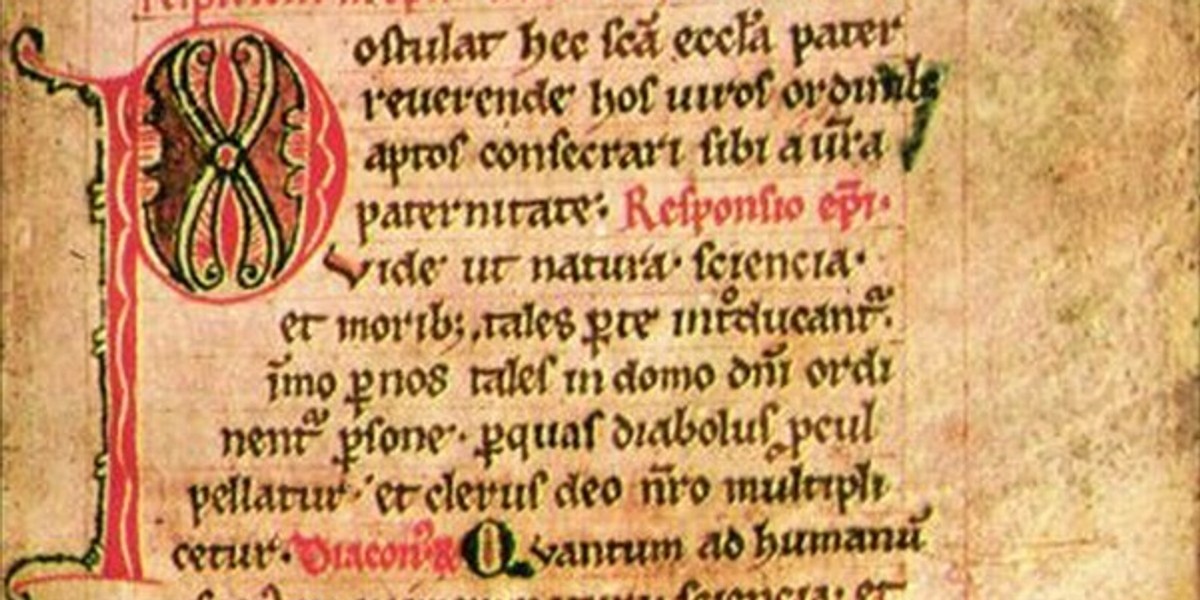 Postulat hec scā eccl̄a pater
reuerende hos uiros ordinib;
aptos consecrari sibi a ūra
paternitate: Responsio ep̄i.
Vide ut natura. sciencia.
et morib; tales ꝑ te introducant᷑.
īmo ꝑ nos tales in domo dn̄i ordi
nent᷑ ꝑsone. ꝑ quas diabolus ꝓcul
pellatur. et clerus deo nr̄o multipli
cetur. Diacon᷒ Quantum ad humanū
sciencia: et